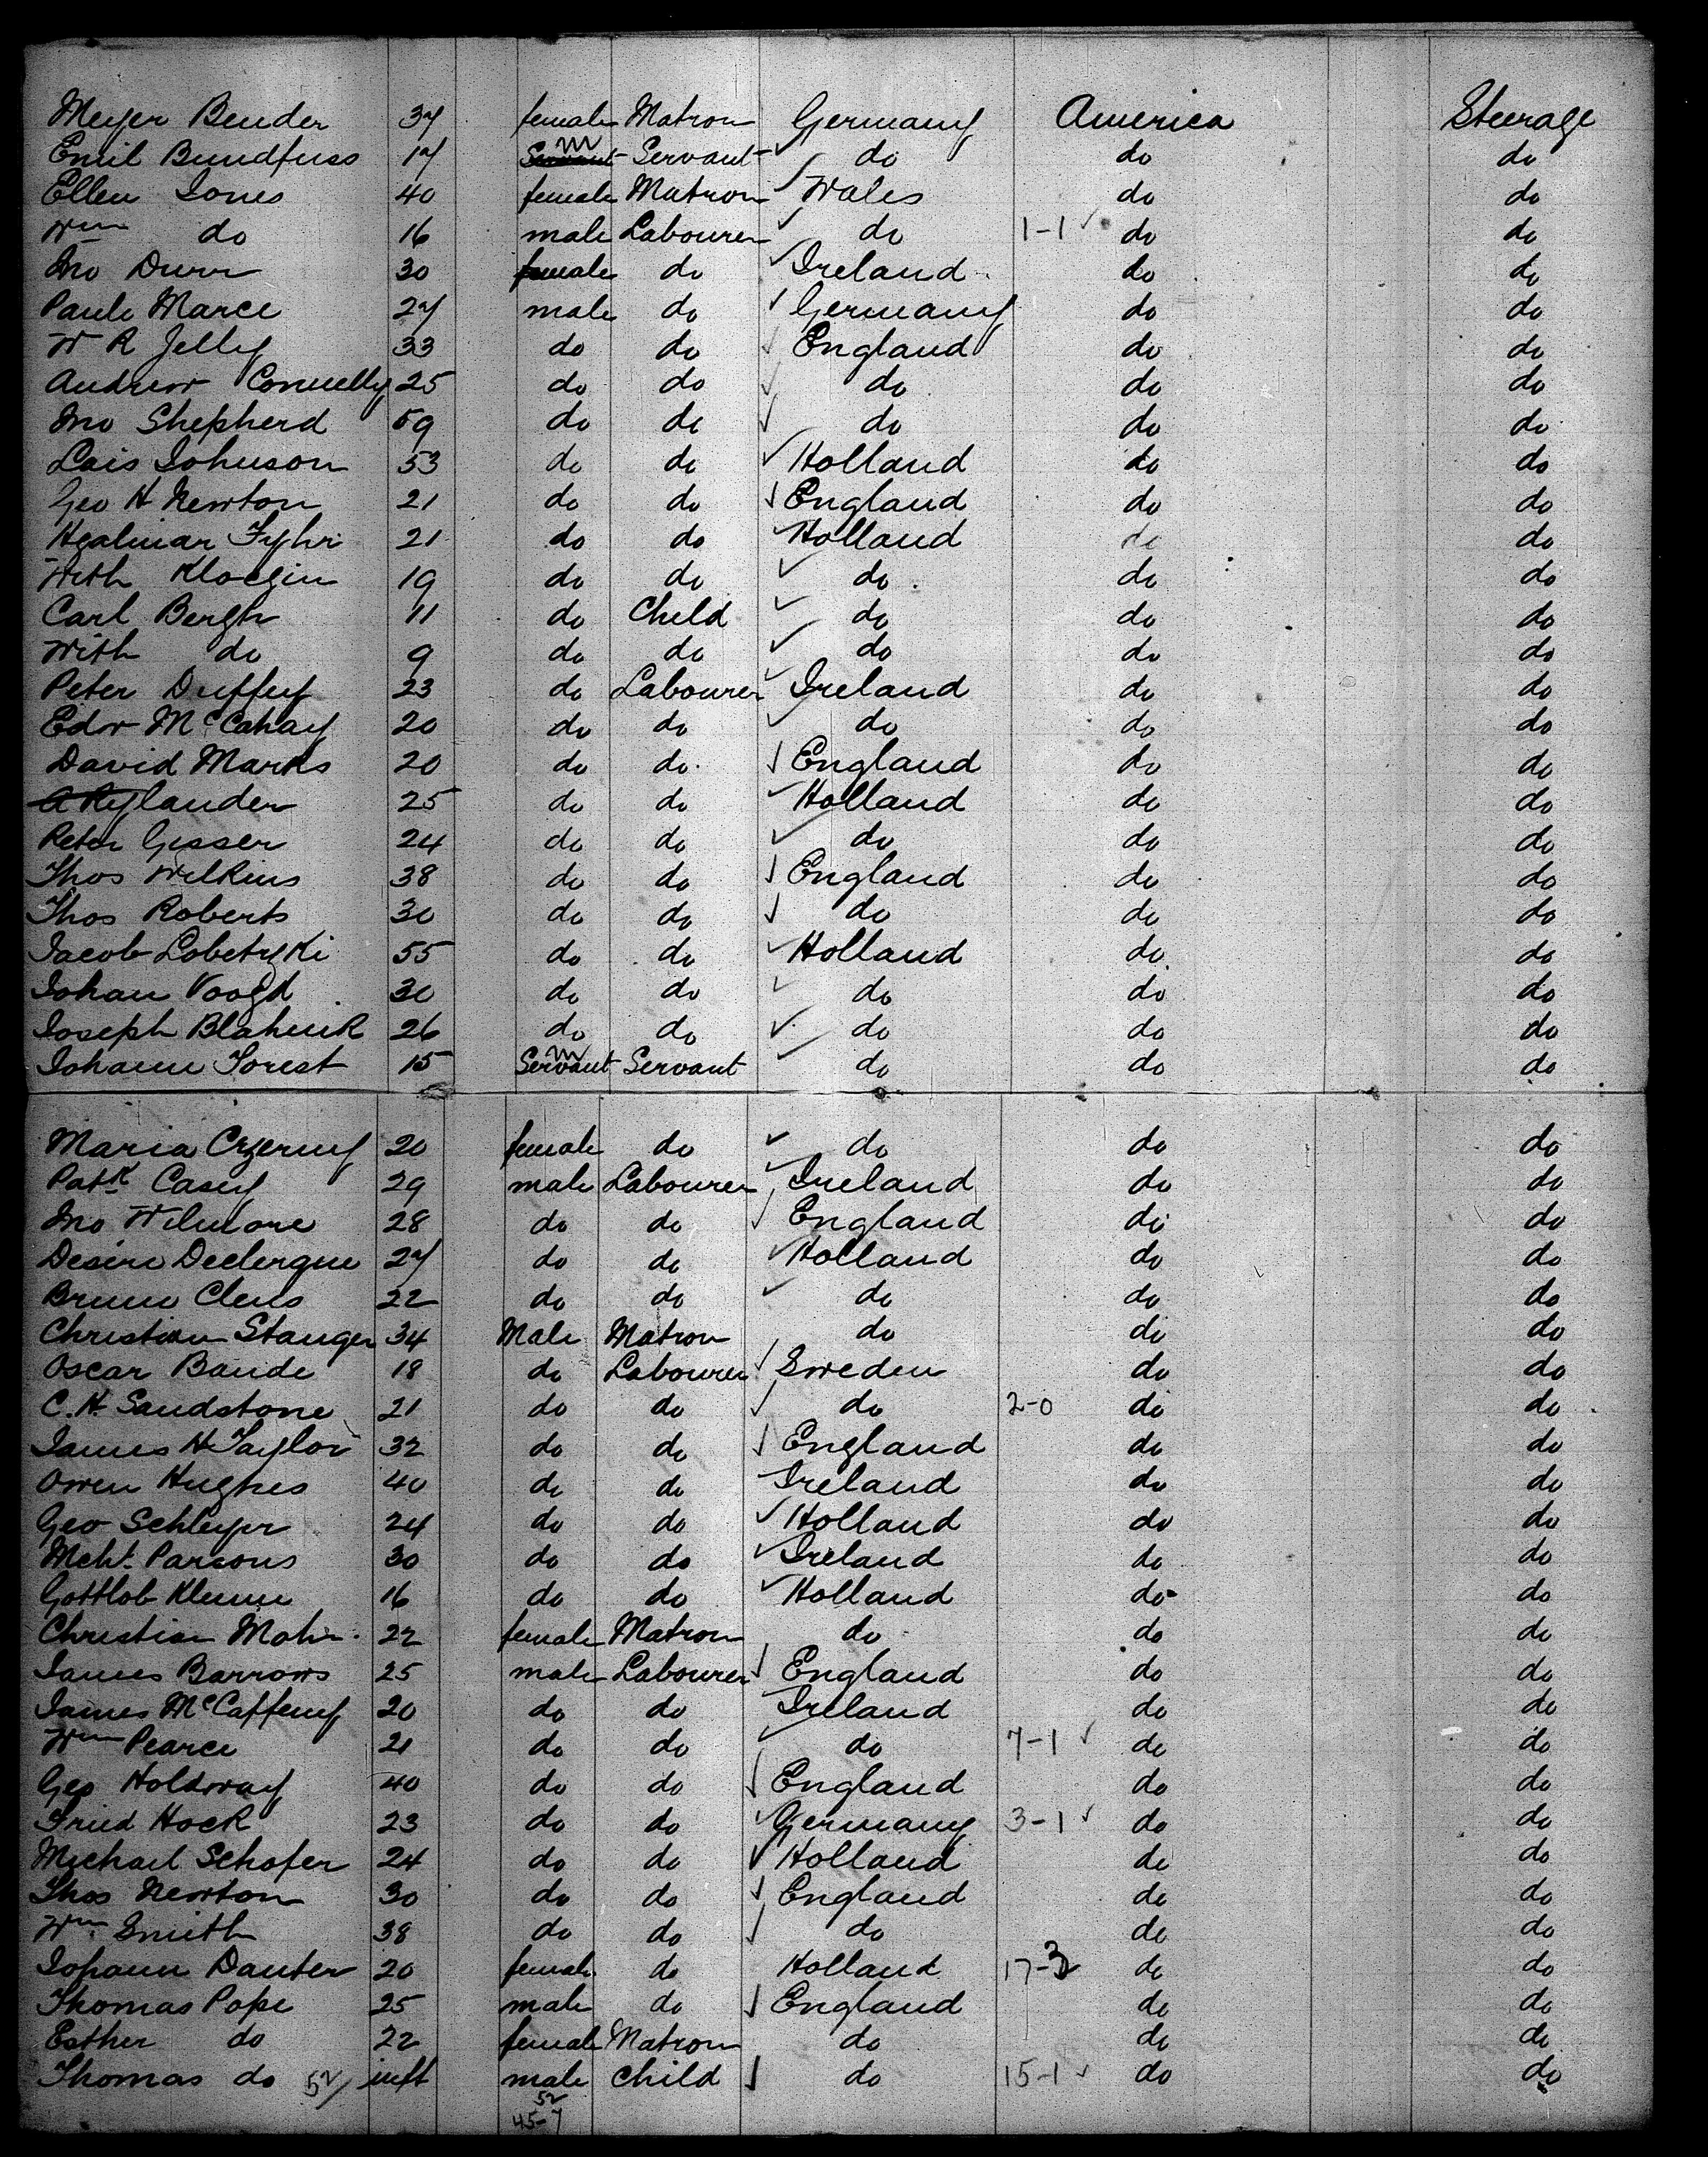 Meyer Bender 37 female Matron Germany America Steerage
Emil Bundfuss 17 Servant m Servant do do do
Ellen Jones 40 female Matron Wales do do
Wm do 16 male Labourer do 1-1 do do
Jno Durr 30 female do Ireland do do
Paule Marce 27 male do Germany do do
W R Jelly 33 do do England do do
Andrew Connelly 25 do do do do do
Jno Shepherd 59 do do do do do
Lais Johnson 53 do do Holland do do
Geo H Newton 21 do do England do do
Hjalmar Fyhr 21 do do Holland do do
With 19 do do do do do
Carl Bergh 11 do Child do do do
With do 9 do do do do do
Peter Duffey 23 do Labourer Ireland do do
Edw McCahay 20 do do do do do
David Marks 20 do do England do do
A Rylander 25 do do Holland do do
Peter Gisser 24 do do do do do
Thos Wilkins 38 do do England do do
Thos Roberts 30 do do do do do
Jacob Lobetzki 55 do do Holland do do
Johan Voogd 30 do do do do do
Joseph Blahnik 26 do do do do do
Johann Forest 15 Servant m Servant do do do
Maria Czerny 20 female do do do do
Patk Casey 29 male Labourer Ireland do do
Jno Wilmore 28 do do England do do
Desire Declerque 27 do do Holland do do
Bruno Clens 22 do do do do do
Christian Stanger 34 Male Matron do do do
Oscar Bande 18 do Labourer Sweden do do
C. H. Sandstone 21 do do do 2-0 do do
James H Taylor 32 do do England do do
Owen Hughes 40 do do Ireland do do
Geo Schleyer 24 do do Holland do do
Mcht. Parsons 30 do do Ireland do do
Gottlob Klemm 16 do do Holland do do
Christian Mohr 22 female Matron do do do
James Barrows 25 male Labourer England do do
James McCafferey 20 do do Ireland do do
Wm Pearce 21 do do do 7-1 do do
Geo Holdway 40 do do England do do
Fried Hock 23 do do Germany 3-1 do do
Michael Schofer 24 do do Holland do do
Thos Newton 30 do do England do do
Wm Smith 38 do do do do do
Johann Danter 20 female do Holland 17-3 do do
Thomas Pope 25 male do England do do
Esther do 22 female Matron do do do
Thomas do 52/ inft male Child do 15-1 do do
52
45-7